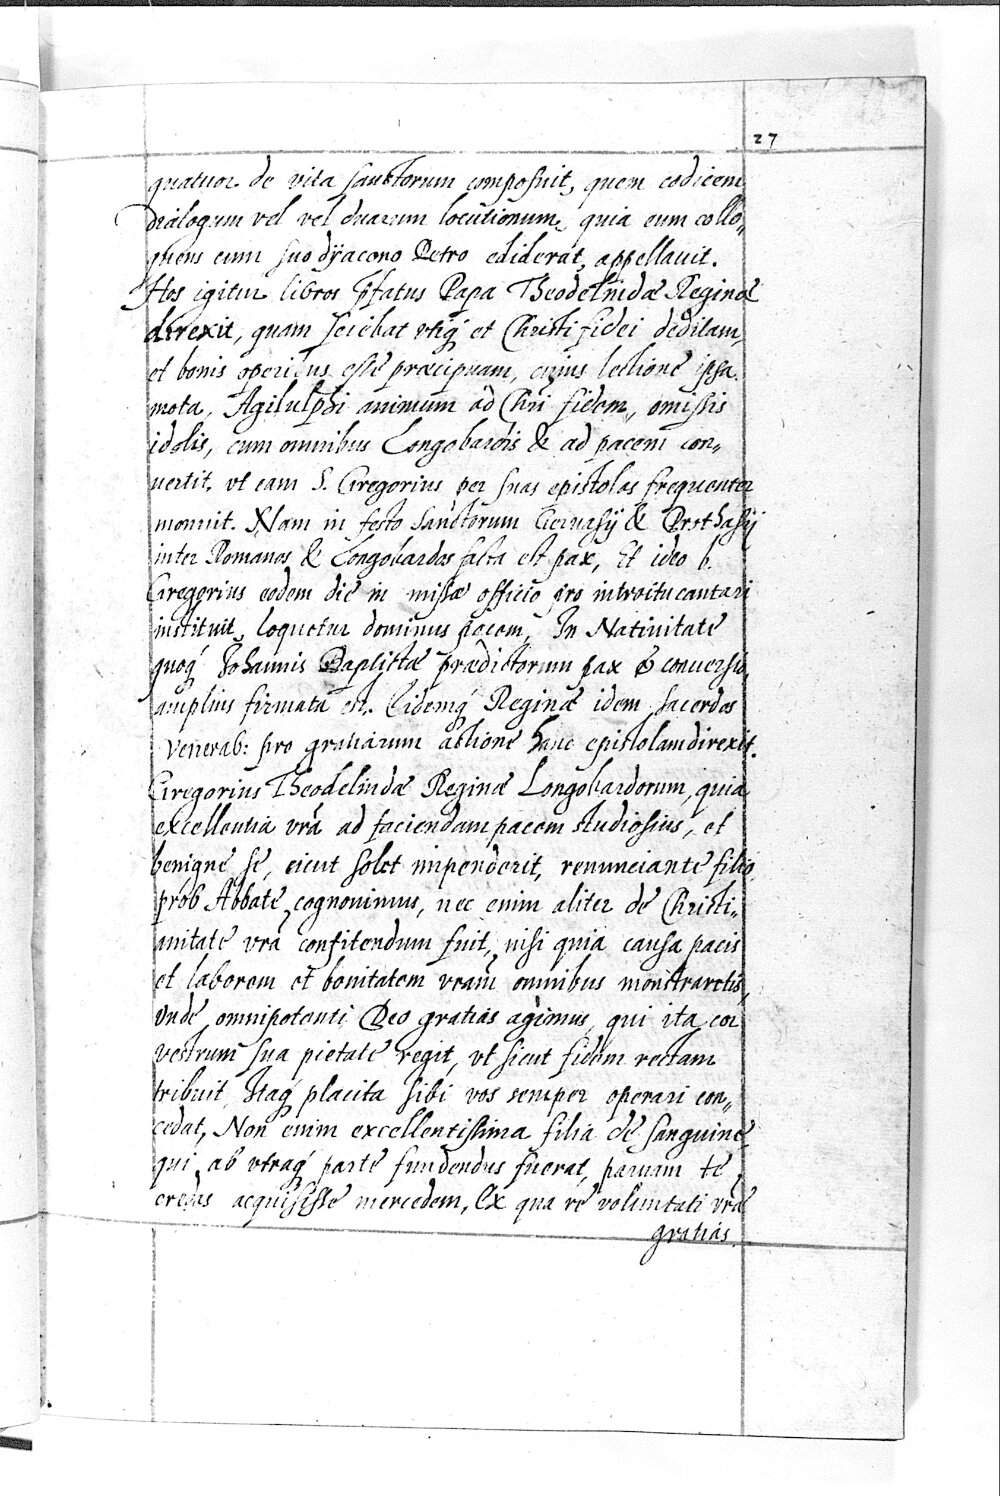 27
quatuor de vita sanctorum composuit, quem codicem
Dialogum vel vel duarum locutionum, quia eum collo„
quens cum suo dyacono Petro ediderat, appellauit.
Hos igitur libros p̄fatus Papa Theodelindæ Reginæ
direxit, quam sciebat vtiq́ et Christi fidei deditam,
et bonis operibus esse præcipuam, cuius lectione ipsa
mota, Agilulphi animum ad Chri fidem, omissis
idolis, cum omnibus Longobardis & ad pacem con„
uertit. vt eam S. Gregorius per suas epistolas frequenter
monuit. Nam in festo sanctorum Geruasij & Prothasij
inter Romanos & Longobardos facta est pax, Et ideo b.
Gregorius eodem die in missæ officio pro introitu cantari
instituit, loquetur dominus pacem, In Natiuitate
quoq́ Johannis Baptistæ prædictorum pax & conuersio
amplius firmata est. Eidemq́ Reginæ idem sacerdos
venerab: pro gratiarum actione hanc epistolam direxit.
Gregorius Theodelindæ Reginæ Longobardorum, quia
excellentia vrã ad faciendam pacem studiosius, et
benigne se, sicut solet impenderit, renunciante filio
prob Abbate cognouimus, nec enim aliter de Christi„
anitate vrã confitendum fuit, nisi quia causa pacis
et laborem et bonitatem vram̃ omnibus monstraretis,
Vnde omnipotenti Deo gratias agimus, qui ita cor
vestrum sua pietate regit, vt sicut fidem rectam
tribuit, Itaq́ placita sibi vos semper operari con„
cedat, Non enim excellentissima filia de sanguine
qui ab vtraq́ parte fundendus fuerat, paruam te
credas acquisisse mercedem, Ex qua re voluntati vrã
gratias